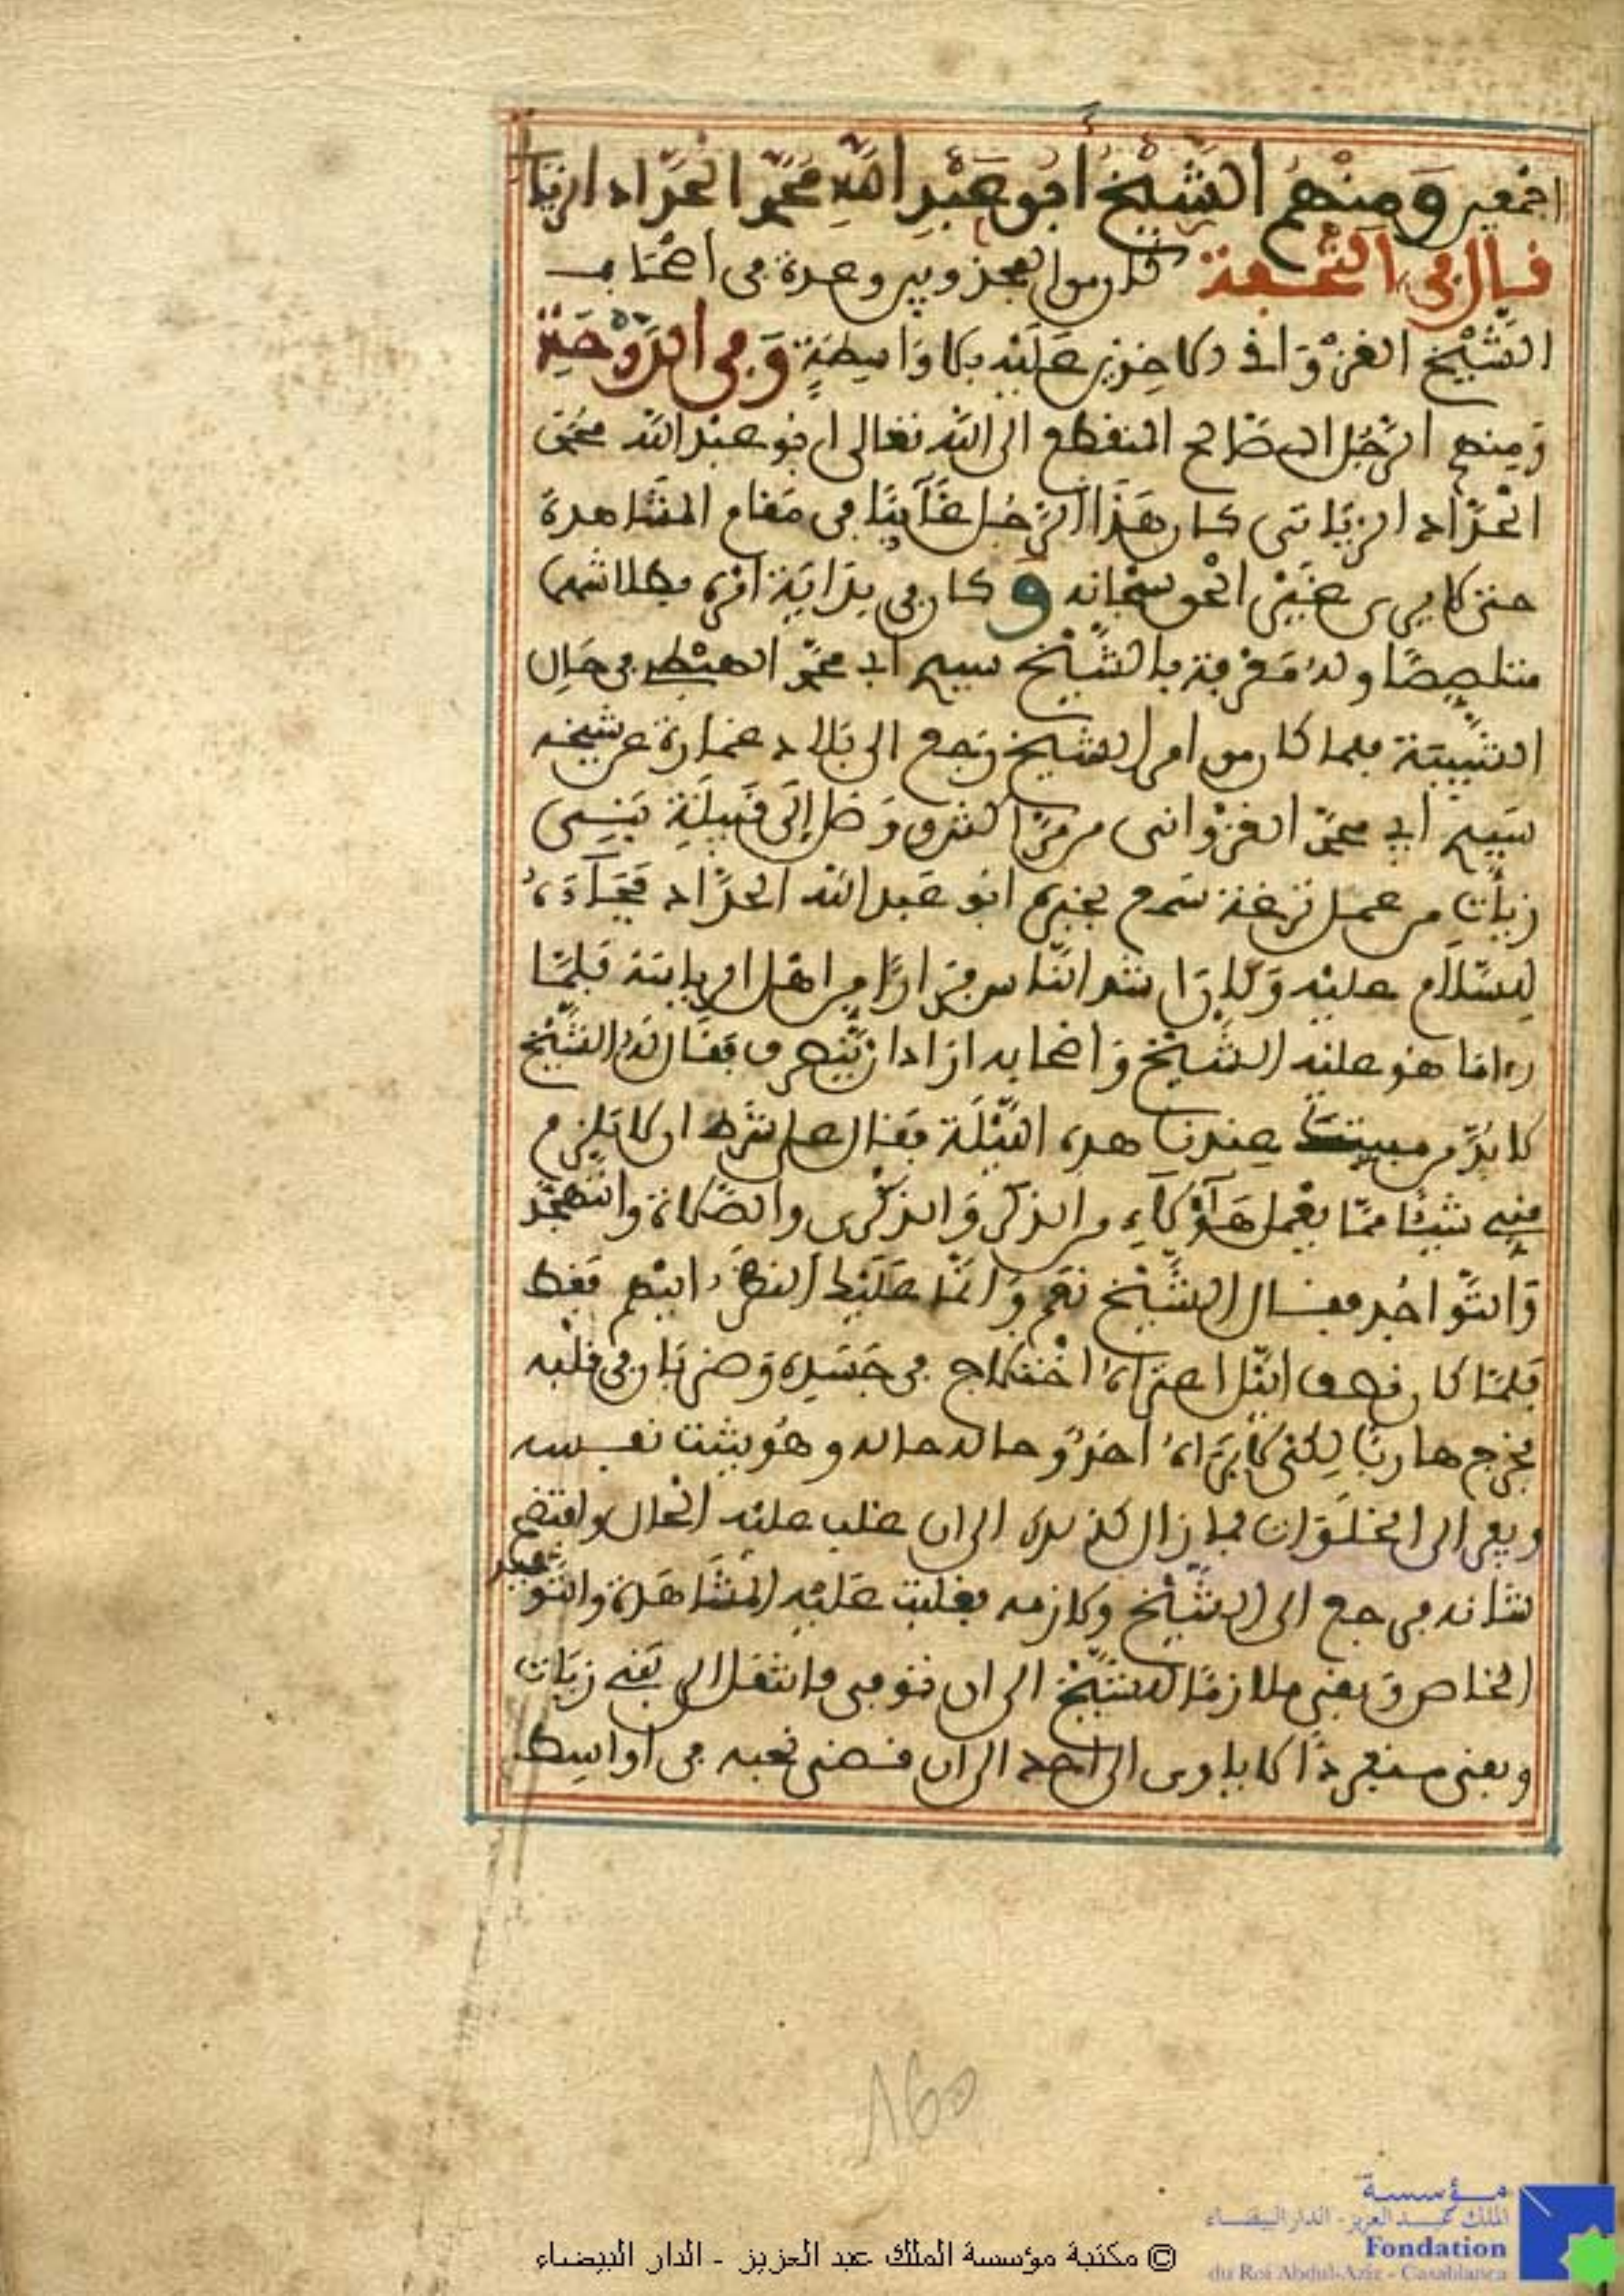 اجمعين ومنهم الشيخ أبو عبد الله محمد الحداد الزيا
قال في التحفة كان من المجذوبين وعده في اصحاب
الشيخ الغزواني الاخذين عليه بلا واسطة وفي الدوحة
ومنهم الرجل الصالح المنقطع الى الله تعالى ابو عبد الله محمد
الحداد الزياتي كان هذا الرجل غائبا في مقام المشاهدة
حتى لا يرى غير الحق سبحانه وكان في بداية امره بطلا شهما
متلصصا وله معرفة بالشيخ سيدي ابي محمد الهبطي في حال
الشبيبة فلما كان من امر الشيخ ورجع الى بلاد غمارة عن شيخه
سيدي ابي محمد الغزواني من مراكش ووصل إلى قبيلة بني
زيات من عمل ترغة سمع بخبره ابو عبد الله الحداد فجاءه
للسلام عليه ولا زال ينشد الناس فرارا من اهل الرياسة فلما
رءا ما هو عليه الشيخ واصحابه اراد ان ينصرف فقال له الشيخ
لا بد من مبيتك عندنا هذه الليلة فقال على شرط ان لا يلزم
مني شيئا مما يعمل هؤلاء من الذكر والذكرى والصلاة والتهجد
والتواجد فقال الشيخ نعم وانما عليك النظر اليهم فقط
فلما كان نصف الليل اعتراه اختلاج في جسده وضربان في قلبه
فخرج هاربا لكي لا يراه احد وحاله حاله وهو يثبت نفسه
ويفر الى الخلوات فما زال كذلك الى ان غلب عليه الحال وافتضح
شانه فرجع الى الشيخ ولازمه فغلبت عليه المشاهدة والتوحيد
الخاص وبقي ملازما للشيخ الى ان توفي فانتقل الى بني زيات
وبقي منفردا لا ياوي الى احد الى ان قضى نحبه في اواسط
160
© مكتبة مؤسسة الملك عبد العزيز - الدار البيضاء
مؤسسة
الملك عبد العزيز - الدار البيضاء
Fondation
du Roi Abdul-Aziz - Casablanca